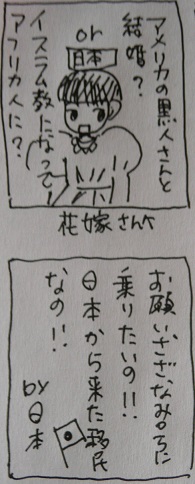 アメリカの黒人さんと
結婚?
or
日本
イスラム教になって!
アフリカ人に?
花嫁さんへ
お願いさざなみ号に
乗りたいの!!
日本から来た移民
なの!!
by日本